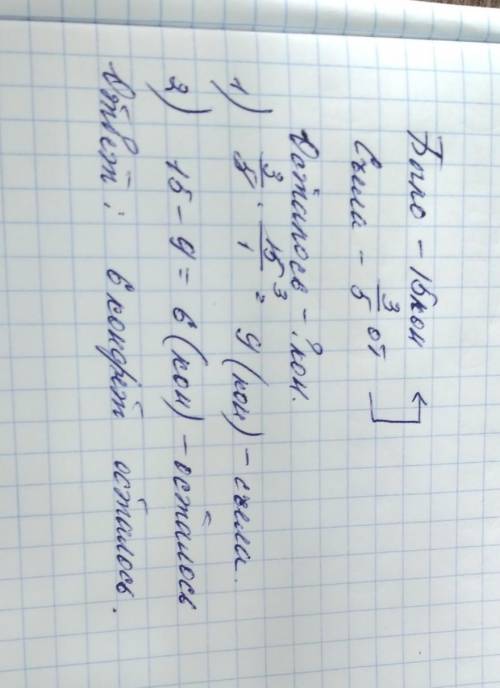 Было - 15кон
Съела - 3/5 от
Осталось - ? кон.
1) 3/5 · 15/1 3 = 9 (кон) - съела.
2) 15 - 9 = 6 (кон) - осталось
Ответ: 6 конфет осталось.